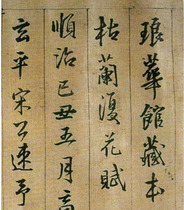 琅華館藏本
枯蘭復花賦
順治己丑五月
玄平宋公速予